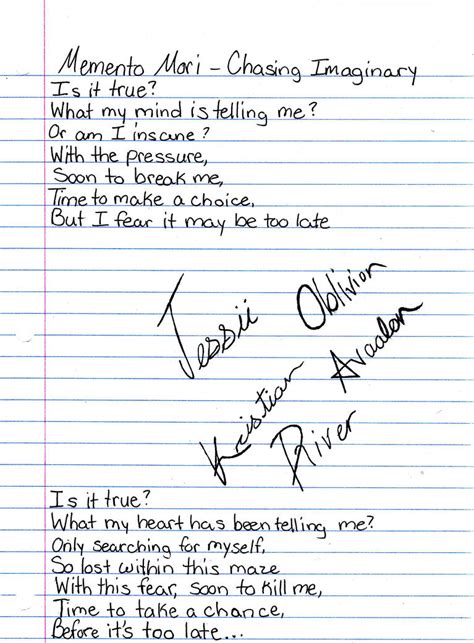 Memento Mori - Chasing Imaginary
Is it true?
What my mind is telling me?
Or am I insane?
With the pressure,
Soon to break me,
Time to make a choice,
But I fear it may be too late
Jessii Oblivion
Kristian Avaalon
River
Is it true?
What my heart has been telling me?
Only searching for myself,
So lost within this maze
With this fear, soon to kill me,
Time to take a chance,
Before it's too late...